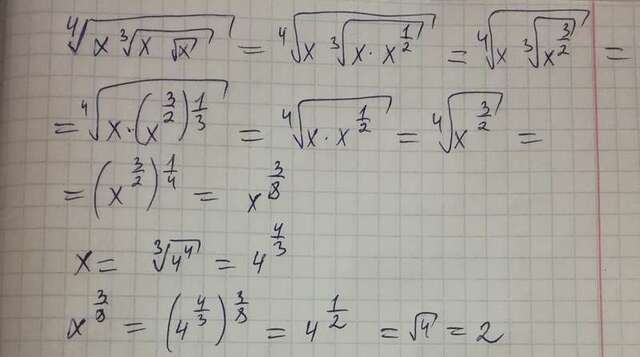 ⁴√(x ³√(x √x)) = ⁴√(x ³√(x · x^(1/2))) = ⁴√(x ³√(x^(3/2))) =
= ⁴√(x · (x^(3/2))^(1/3)) = ⁴√(x · x^(1/2)) = ⁴√(x^(3/2)) =
= (x^(3/2))^(1/4) = x^(3/8)
x = ³√(4⁴) = 4^(4/3)
x^(3/8) = (4^(4/3))^(3/8) = 4^(1/2) = √4 = 2